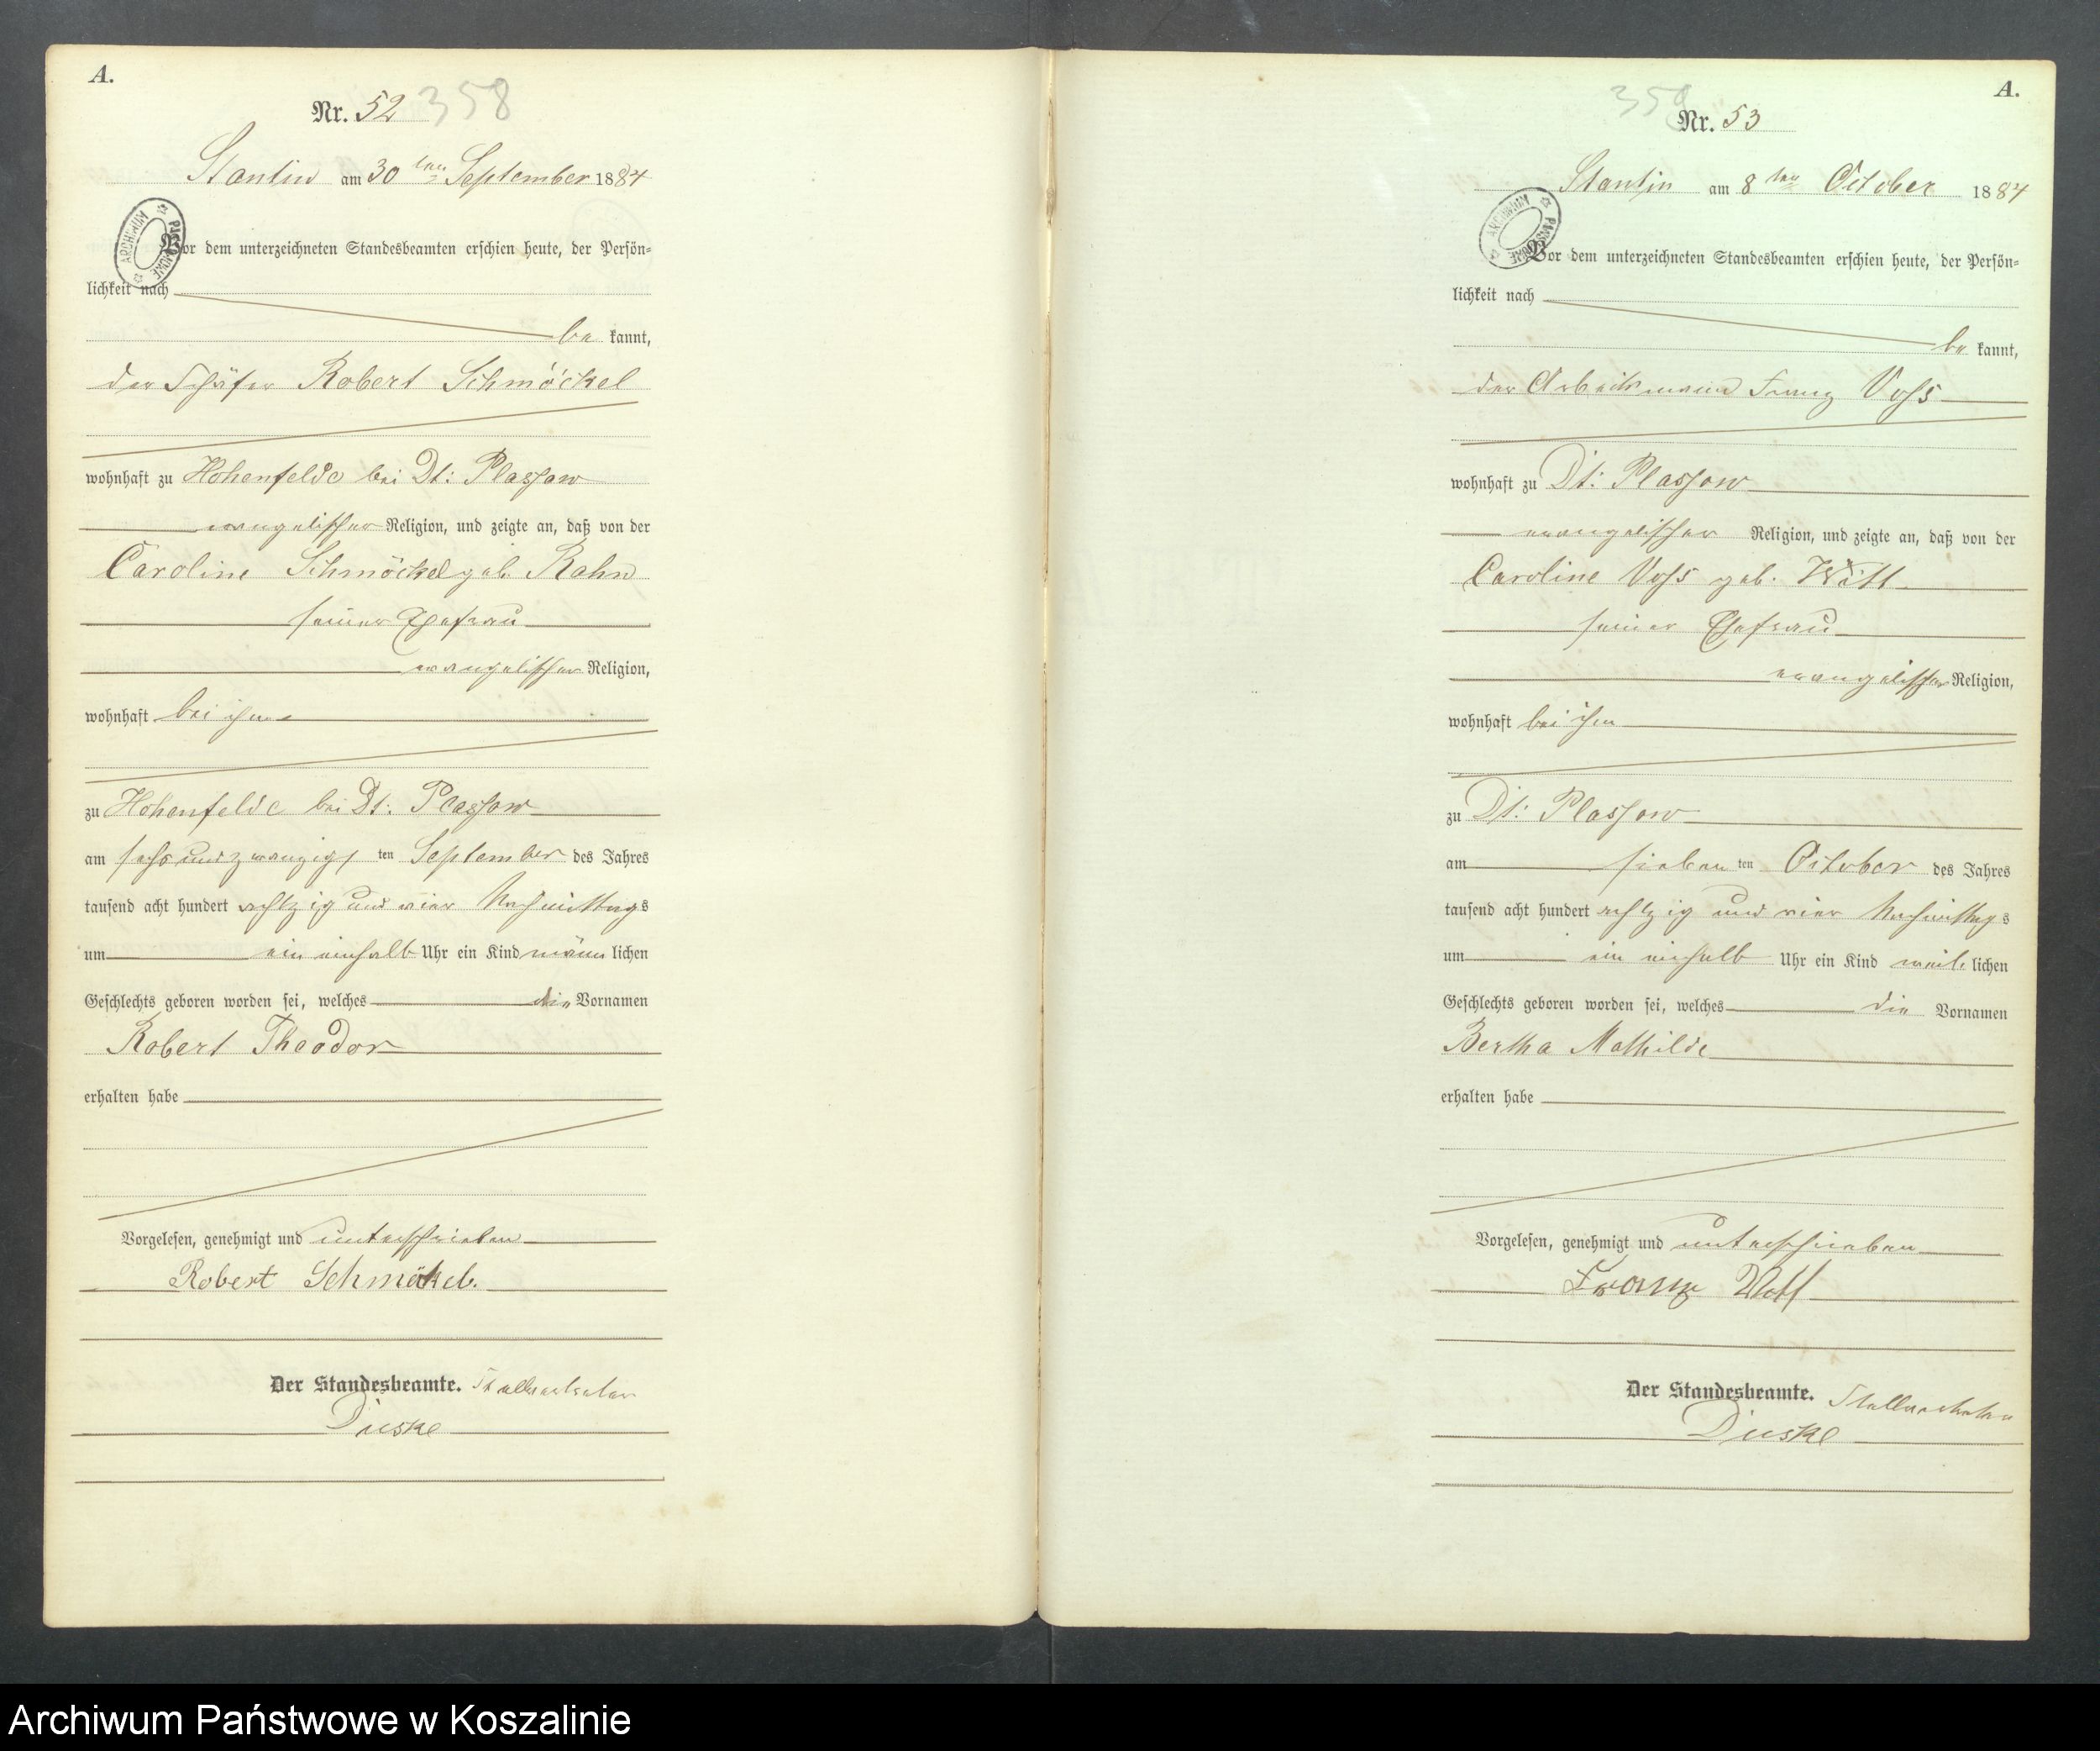 A.
Nr. 52 358
Stantin am 30 ten September 1884
ARCHIWUM PAŃSTWOWE
Vor dem unterzeichneten Standesbeamten erschien heute, der Persön-
lichkeit nach
be kannt,
der Schäfer Robert Schmöckel
wohnhaft zu Hohenfelde bei Dt: Plassow
evangelischer Religion, und zeigte an, daß von der
Caroline Schmöckel geb. Rahn
seiner Ehefrau
evangelischer Religion,
wohnhaft bei ihm
zu Hohenfelde bei Dt: Plassow
am sechsundzwanzigs ten September des Jahres
tausend acht hundert achtzig und vier Nachmittags
um ein einhalb Uhr ein Kind männ lichen
Geschlechts geboren worden sei, welches die Vornamen
Robert Theodor
erhalten habe
Vorgelesen, genehmigt und unterschrieben
Robert Schmökel.
Der Standesbeamte. Stellvertreter
A.
359
Nr. 53
Stantin am 8 ten October 1884
ARCHIWUM PAŃSTWOWE
Vor dem unterzeichneten Standesbeamten erschien heute, der Persön-
lichkeit nach
be kannt,
der Arbeitsmann Franz Voss
wohnhaft zu Dt: Plassow
evangelischer Religion, und zeigte an, daß von der
Caroline Voss geb. Witt
seiner Ehefrau
evangelischer Religion,
wohnhaft bei ihm
zu Dt: Plassow
am sieben ten October des Jahres
tausend acht hundert achtzig und vier Nachmittags
um ein einhalb Uhr ein Kind weib lichen
Geschlechts geboren worden sei, welches die Vornamen
Bertha Mathilde
erhalten habe
Vorgelesen, genehmigt und unterschrieben
Franz
Der Standesbeamte. Stellvertreter
Archiwum Państwowe w Koszalinie